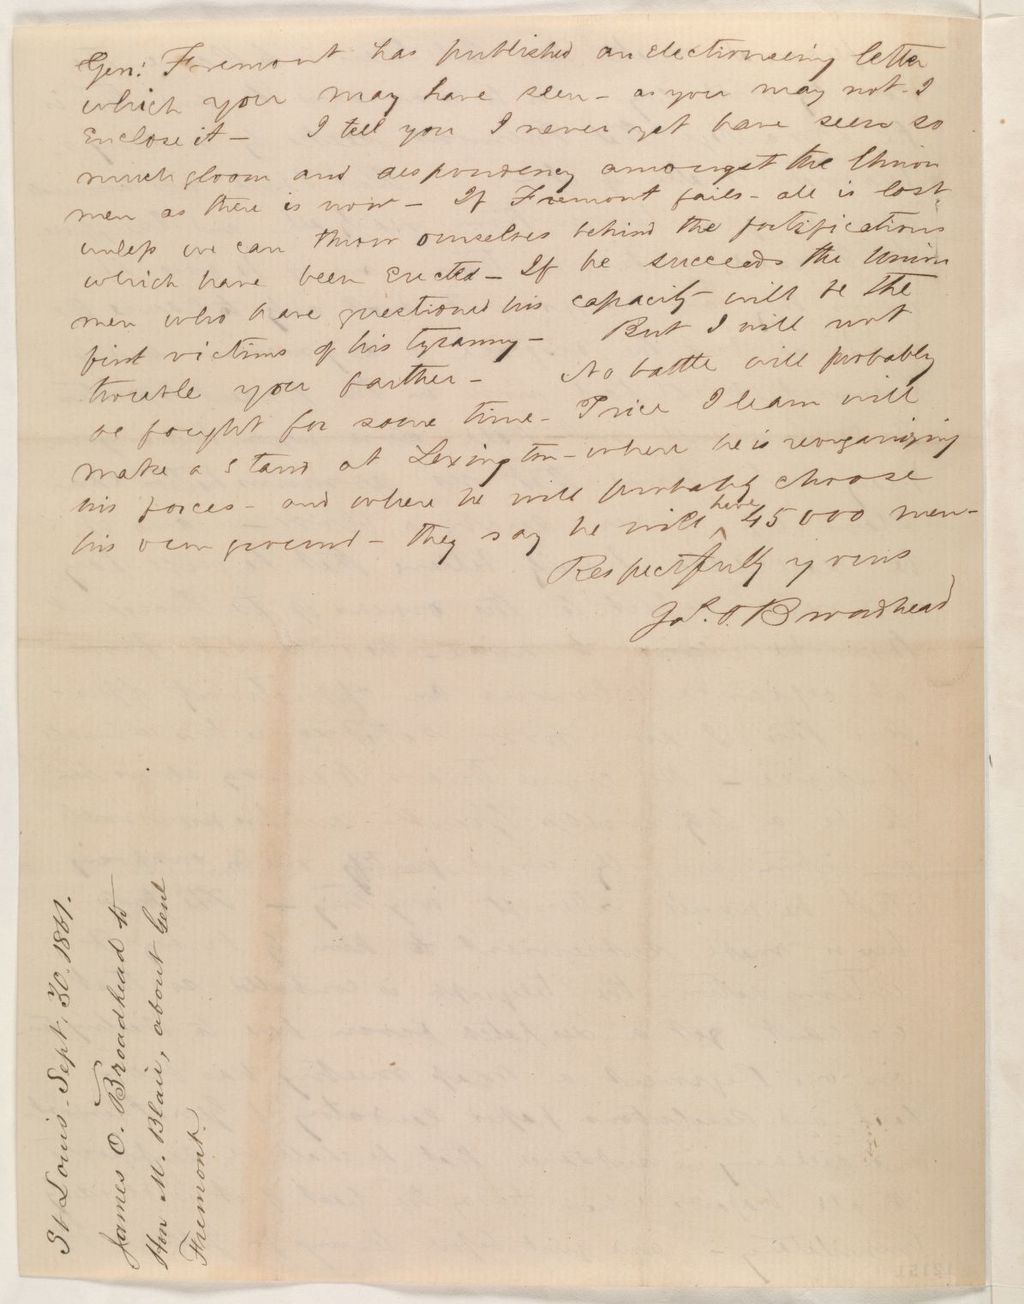 Gen: Fremont has published an electioneering letter
which you may have seen - as you may not - I
Enclose it - I tell you I never yet have seen so
much gloom and despondency amongst the Union
men as there is now - If Fremont fails - all is lost
unless we can throw ourselves behind the fortifications
which have been Erected - If he succeeds the Union
men who have questioned his capacity will be the
first victims of his tyranny - But I will not
trouble you farther - No battle will probably
be fought for some time - Price I learn will
make a stand at Lexington - where he is reorganizing
his forces - and where he will probably choose
his own ground - they say he will have 45000 men -
Respectfully yours
Jas. O. Broadhead
St Louis. Sept. 30. 1861.
James O. Broadhead to
Hon M. Blair, about Genl
Fremont.